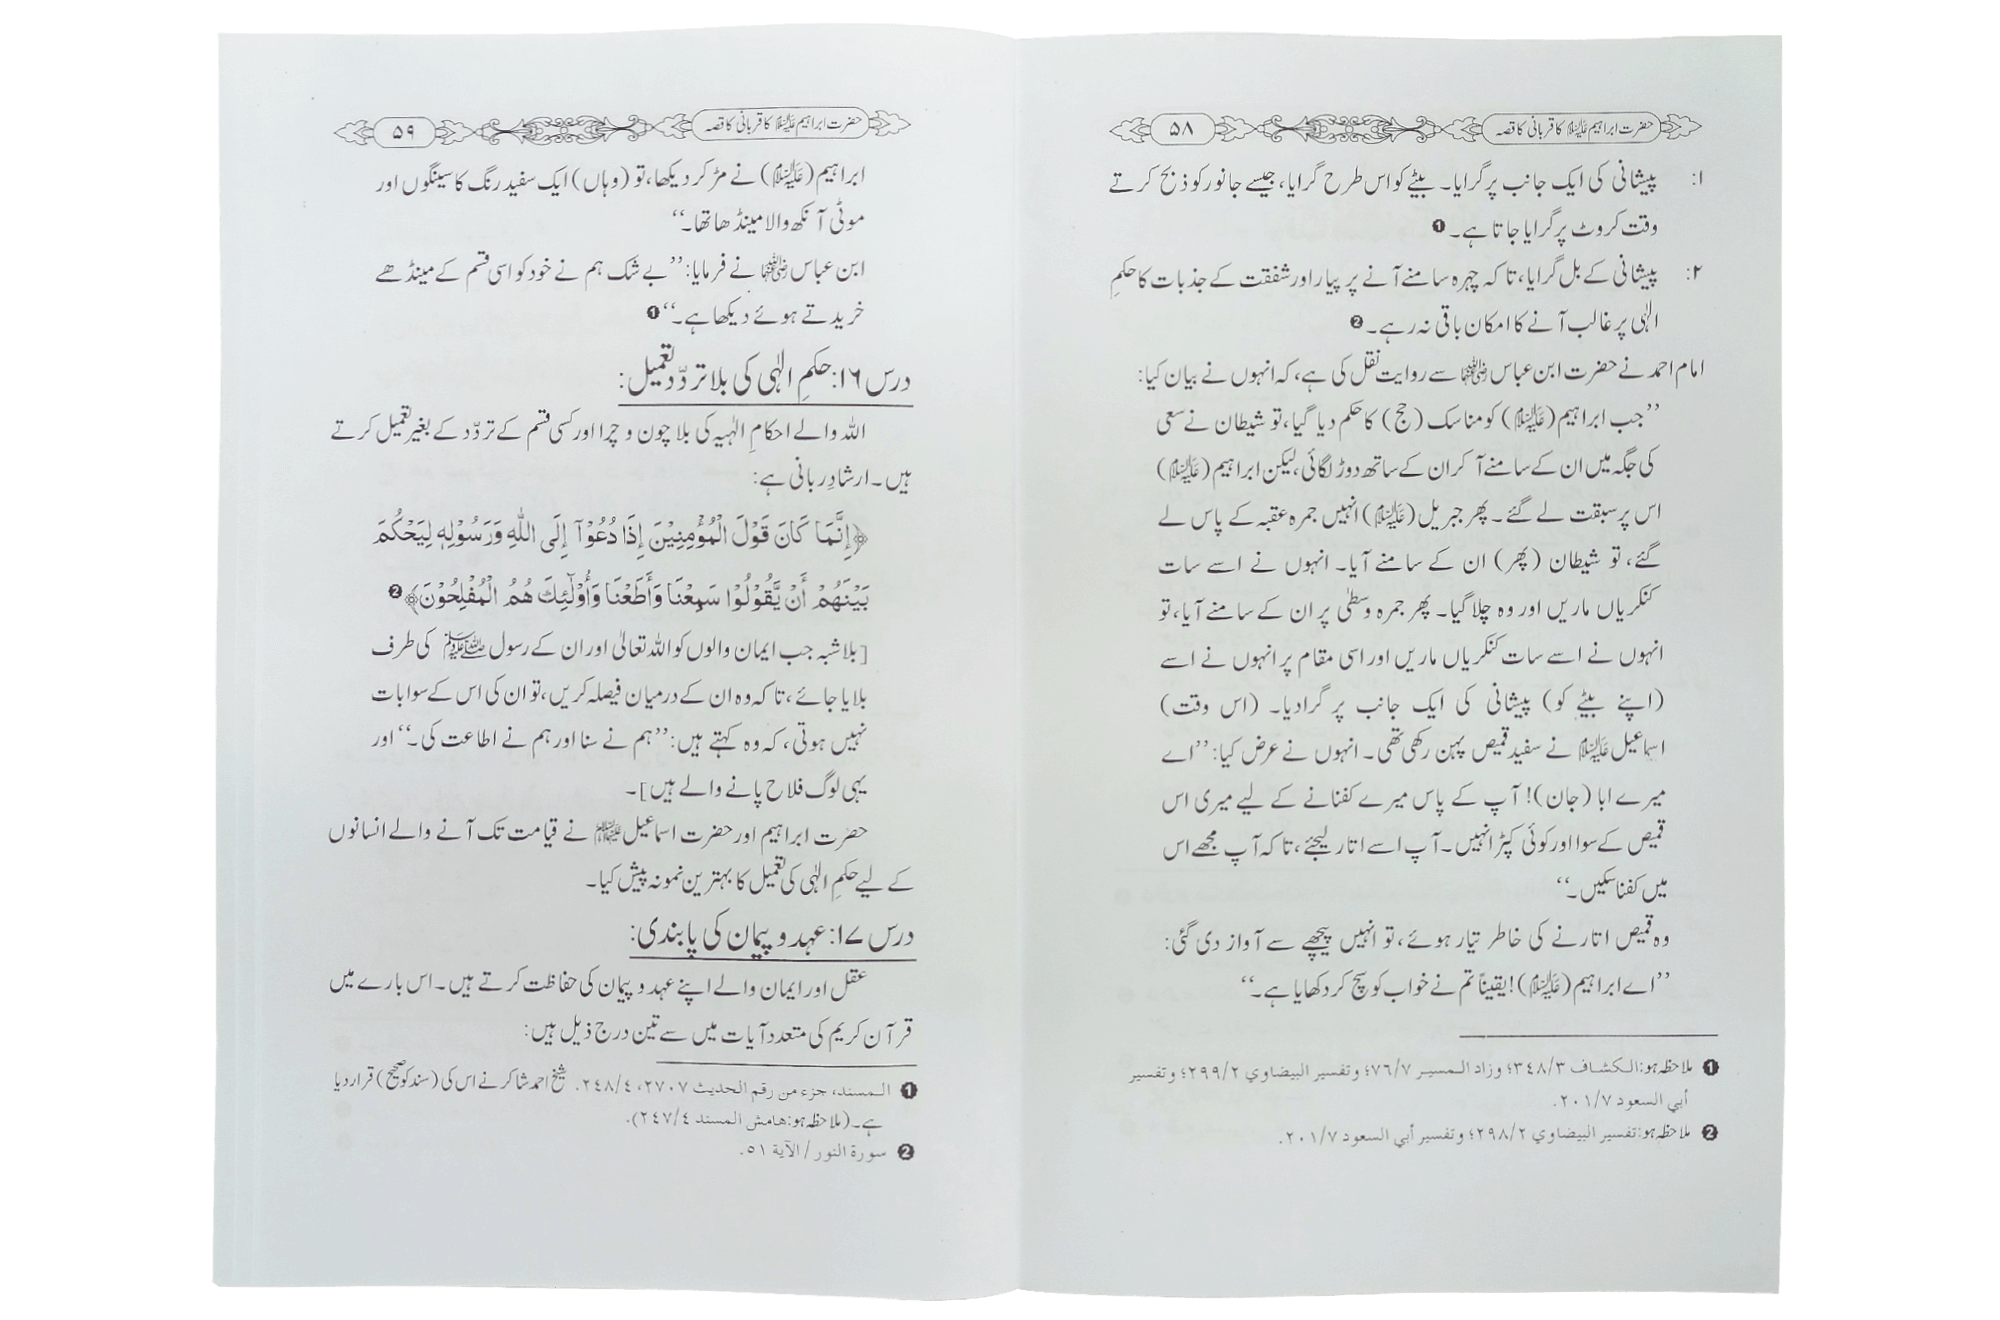 حضرت ابراہیم علیہ السلام کا قربانی کا قصہ
۵۸
۱: پیشانی کی ایک جانب پر گرایا۔ بیٹے کو اس طرح گرایا، جیسے جانور کو ذبح کرتے
وقت کروٹ پر گرایا جاتا ہے۔ ❶
۲: پیشانی کے بل گرایا، تاکہ چہرہ سامنے آنے پر پیار اور شفقت کے جذبات کا حکمِ
الٰہی پر غالب آنے کا امکان باقی نہ رہے۔ ❷
امام احمد نے حضرت ابن عباس رضی اللہ عنہما سے روایت نقل کی ہے، کہ انہوں نے بیان کیا:
’’جب ابراہیم (علیہ السلام) کو مناسک (حج) کا حکم دیا گیا، تو شیطان نے سعی
کی جگہ میں ان کے سامنے آ کر ان کے ساتھ دوڑ لگائی، لیکن ابراہیم (علیہ السلام)
اس پر سبقت لے گئے۔ پھر جبریل (علیہ السلام) انہیں جمرہ عقبہ کے پاس لے
گئے، تو شیطان (پھر) ان کے سامنے آیا۔ انہوں نے اسے سات
کنکریاں ماریں اور وہ چلا گیا۔ پھر جمرہ وسطیٰ پر ان کے سامنے آیا، تو
انہوں نے اسے سات کنکریاں ماریں اور اسی مقام پر انہوں نے اسے
(اپنے بیٹے کو) پیشانی کی ایک جانب پر گرا دیا۔ (اس وقت)
اسماعیل علیہ السلام نے سفید قمیص پہن رکھی تھی۔ انہوں نے عرض کیا: ’’اے
میرے ابا (جان)! آپ کے پاس میرے کفنانے کے لیے میری اس
قمیص کے سوا اور کوئی کپڑا نہیں۔ آپ اسے اتار لیجئے، تاکہ آپ مجھے اس
میں کفنا سکیں۔‘‘
وہ قمیص اتارنے کی خاطر تیار ہوئے، تو انہیں پیچھے سے آواز دی گئی:
’’اے ابراہیم (علیہ السلام)! یقیناً تم نے خواب کو سچ کر دکھایا ہے۔‘‘
❶ ملاحظہ ہو: الکشاف ۳/۳۴۸؛ وزاد المسیر ۷/۷۶؛ وتفسیر البیضاوي ۲/۲۹۹؛ وتفسیر
أبي السعود ۷/۲۰۱.
❷ ملاحظہ ہو: تفسیر البیضاوي ۲/۲۹۸؛ وتفسیر أبي السعود ۷/۲۰۱.
حضرت ابراہیم علیہ السلام کا قربانی کا قصہ
۵۹
ابراہیم (علیہ السلام) نے مڑ کر دیکھا، تو (وہاں) ایک سفید رنگ کا سینگوں اور
موٹی آنکھ والا مینڈھا تھا۔‘‘
ابن عباس رضی اللہ عنہما نے فرمایا: ’’بے شک ہم نے خود کو اسی قسم کے مینڈھے
خریدتے ہوئے دیکھا ہے۔‘‘ ❶
درس ۱۶: حکمِ الٰہی کی بلا تردّد تعمیل:
اللہ والے احکامِ الٰہیہ کی بلا چون و چرا اور کسی قسم کے تردّد کے بغیر تعمیل کرتے
ہیں۔ ارشادِ ربانی ہے:
﴿إِنَّمَا كَانَ قَوْلَ الْمُؤْمِنِيْنَ إِذَا دُعُوْٓا إِلَى اللّٰهِ وَرَسُوْلِهٖ لِيَحْكُمَ
بَيْنَهُمْ أَنْ يَّقُوْلُوْا سَمِعْنَا وَأَطَعْنَا وَأُوْلٰٓئِكَ هُمُ الْمُفْلِحُوْنَ﴾ ❷
[بلاشبہ جب ایمان والوں کو اللہ تعالیٰ اور ان کے رسول صلی اللہ علیہ وسلم کی طرف
بلایا جائے، تاکہ وہ ان کے درمیان فیصلہ کریں، تو ان کی اس کے سوا بات
نہیں ہوتی، کہ وہ کہتے ہیں: ’’ہم نے سنا اور ہم نے اطاعت کی۔‘‘ اور
یہی لوگ فلاح پانے والے ہیں]۔
حضرت ابراہیم اور حضرت اسماعیل علیہما السلام نے قیامت تک آنے والے انسانوں
کے لیے حکمِ الٰہی کی تعمیل کا بہترین نمونہ پیش کیا۔
درس ۱۷: عہد و پیمان کی پابندی:
عقل اور ایمان والے اپنے عہد و پیمان کی حفاظت کرتے ہیں۔ اس بارے میں
قرآن کریم کی متعدد آیات میں سے تین درج ذیل ہیں:
❶ المسند، جزء من رقم الحدیث ۲۷۰۷، ۴/۲۴۸. شیخ احمد شاکر نے اس کی (سند کو صحیح) قرار دیا
ہے۔ (ملاحظہ ہو: ھامش المسند ۴/۲۴۷).
❷ سورة النور / الآیة ۵۱.